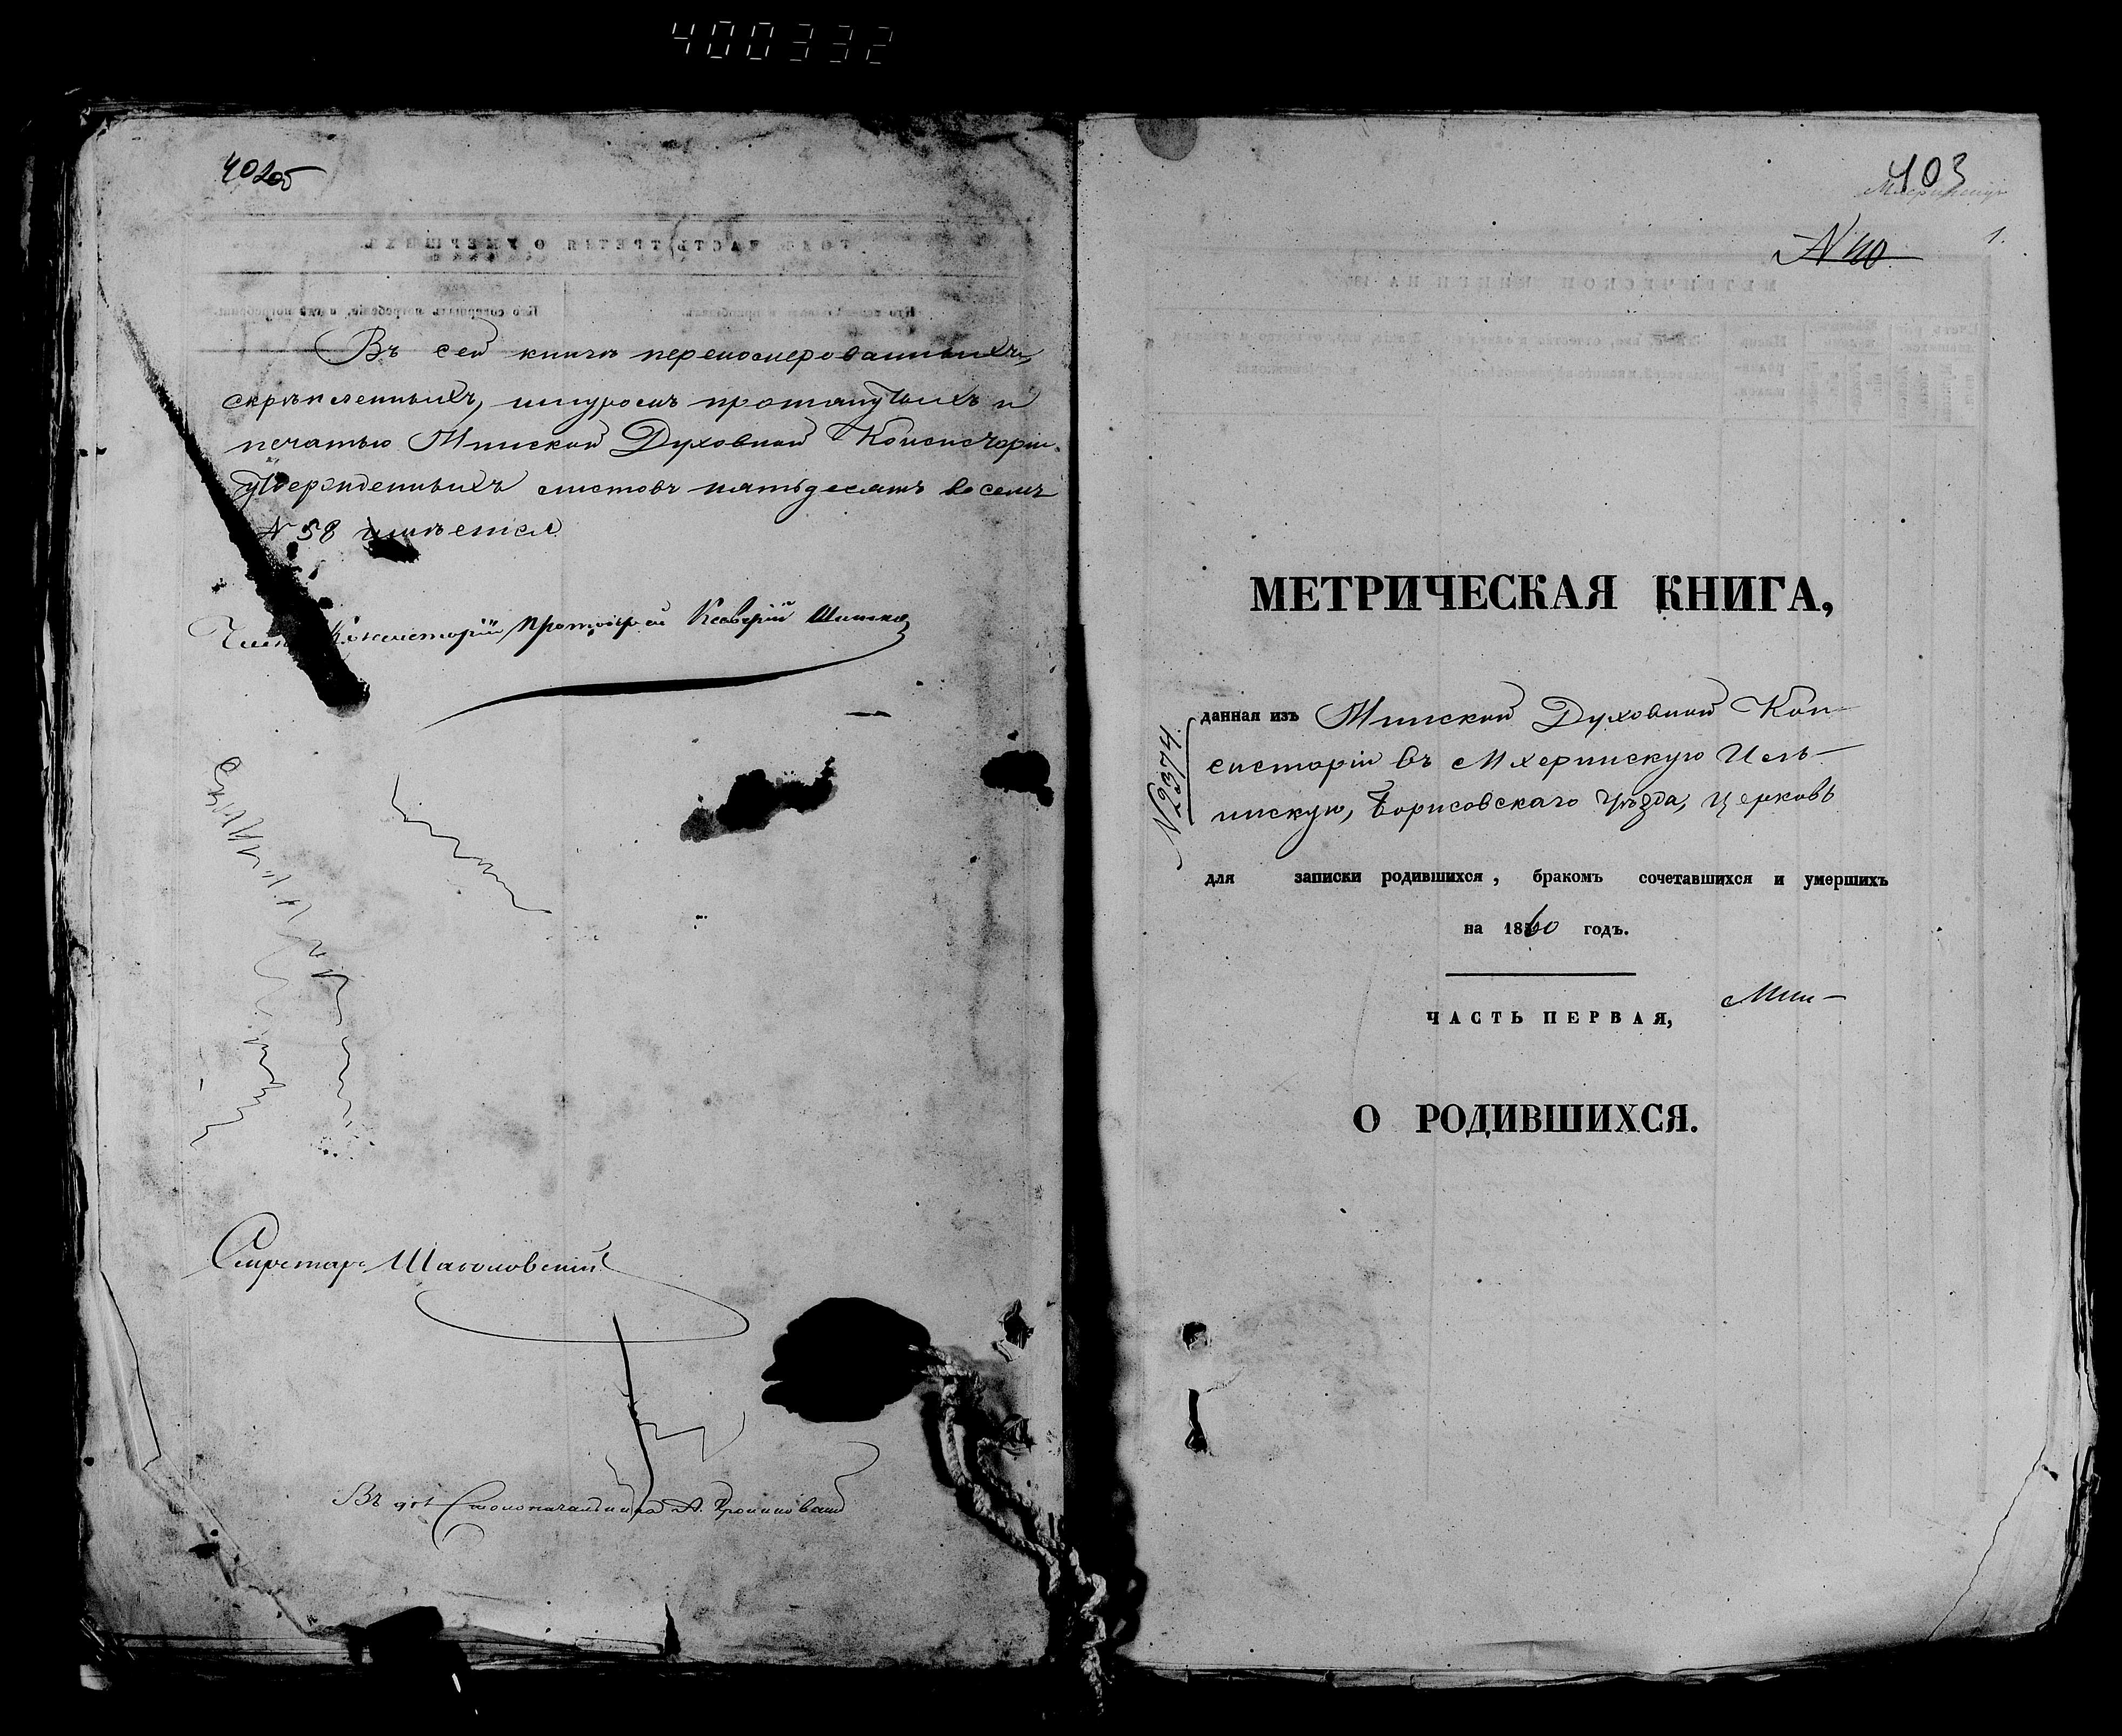 400332
402об
Въ сей книгѣ перенумерованныхъ,
скрѣпленныхъ, шнуромъ протянутыхъ и
печатью Минской Духовной Консисторіи
утвержденныхъ листовъ пятьдесятъ восемь
№ 58 имѣется
Членъ Консисторіи Протоіерей Ксаверій
Секретарь
Въ д. Столоначальника А.
403
№ 40
1.
МЕТРИЧЕСКАЯ КНИГА,
данная изъ Минской Духовной Кон-
систоріи въ Мхеринскую Иль-
инскую, Борисовскаго Уѣзда, Церковь
№ 2574
для записки родившихся, бракомъ сочетавшихся и умершихъ
на 1860 годъ.
Мин-
ЧАСТЬ ПЕРВАЯ,
О РОДИВШИХСЯ.